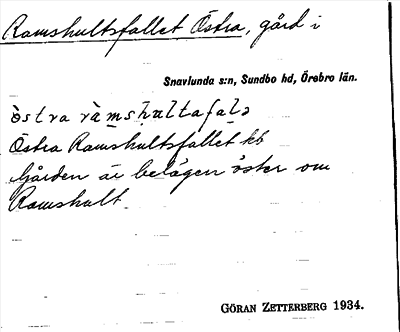 Ramshultsfallet Östra, gård i
Snavlunda s:n, Sundbo hd, Örebro län.
östra ràmshultafalə
Östra Ramshultsfallet kb
Gården är belägen öster om
Ramshult
GÖRAN ZETTERBERG 1934.